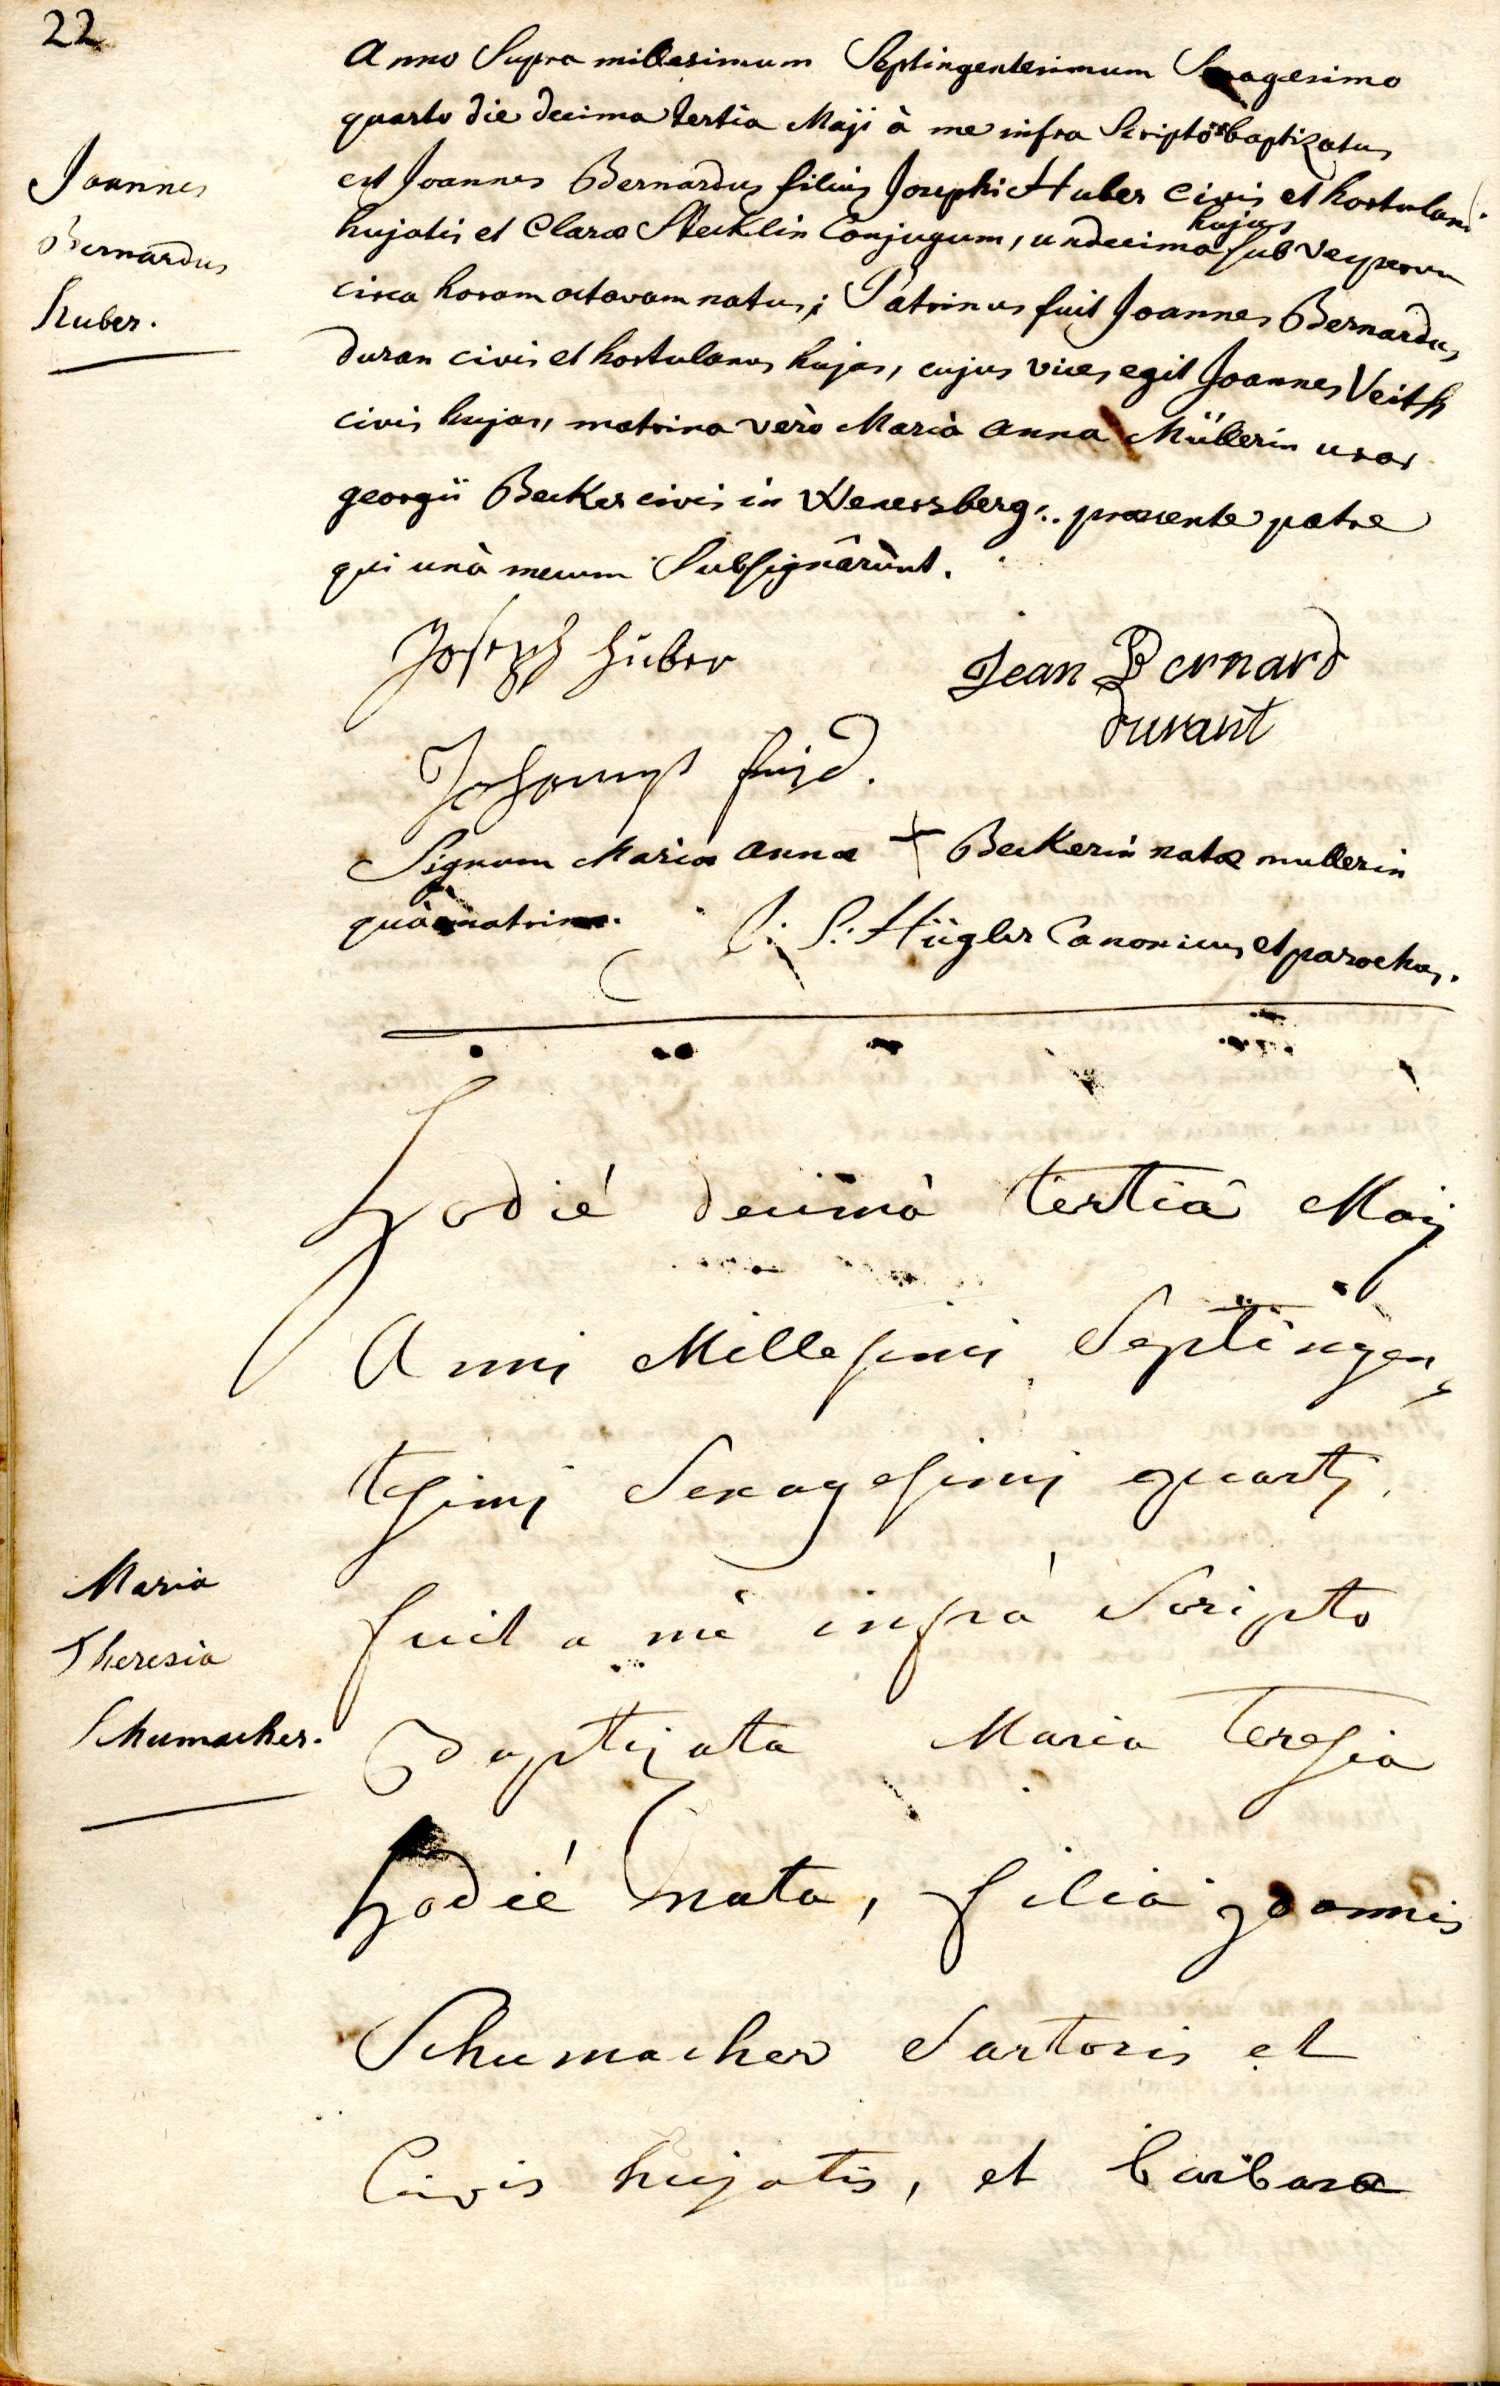 22
Anno Supra millesimum Septingentesimum Sexagesimo
quarto die decima tertia Maji à me infra Scripto baptizatus
Joannes
est Joannes Bernardus filius Josephi Huber civis et hortulani
Bernardus
hujus
hujatis et Claræ Stecklin Conjugum, undecima sub vesperum
Huber.
circa horam octavam natus; Patrinus fuit Joannes Bernardus
duran civis et hortulanus hujas, cujus vices egit Joannes Veith
civis hujas, matrina verò Maria anna Müllerin uxor
georgii Becker civis in Wenersberg, præsente patre
qui unà mecum Subsignârùnt.
Joseph Huber
Jean Bernard
durant
Signum Mariæ annæ + Beckerin natæ mullerin
quà matrinæ.
J: S: Hügler Canonicus et parochus.
hodié decimà tertiâ Maij
Anni Millesimi Septingen
tesimj Sexagesimj quartj
Maria
fuit a mè infrà Scripto
Theresia
Schumacher.
Baptizata Maria Teresia
hodié nata, filia joannis
Schumacher Sartoris et
Civis hujatis, et barbara